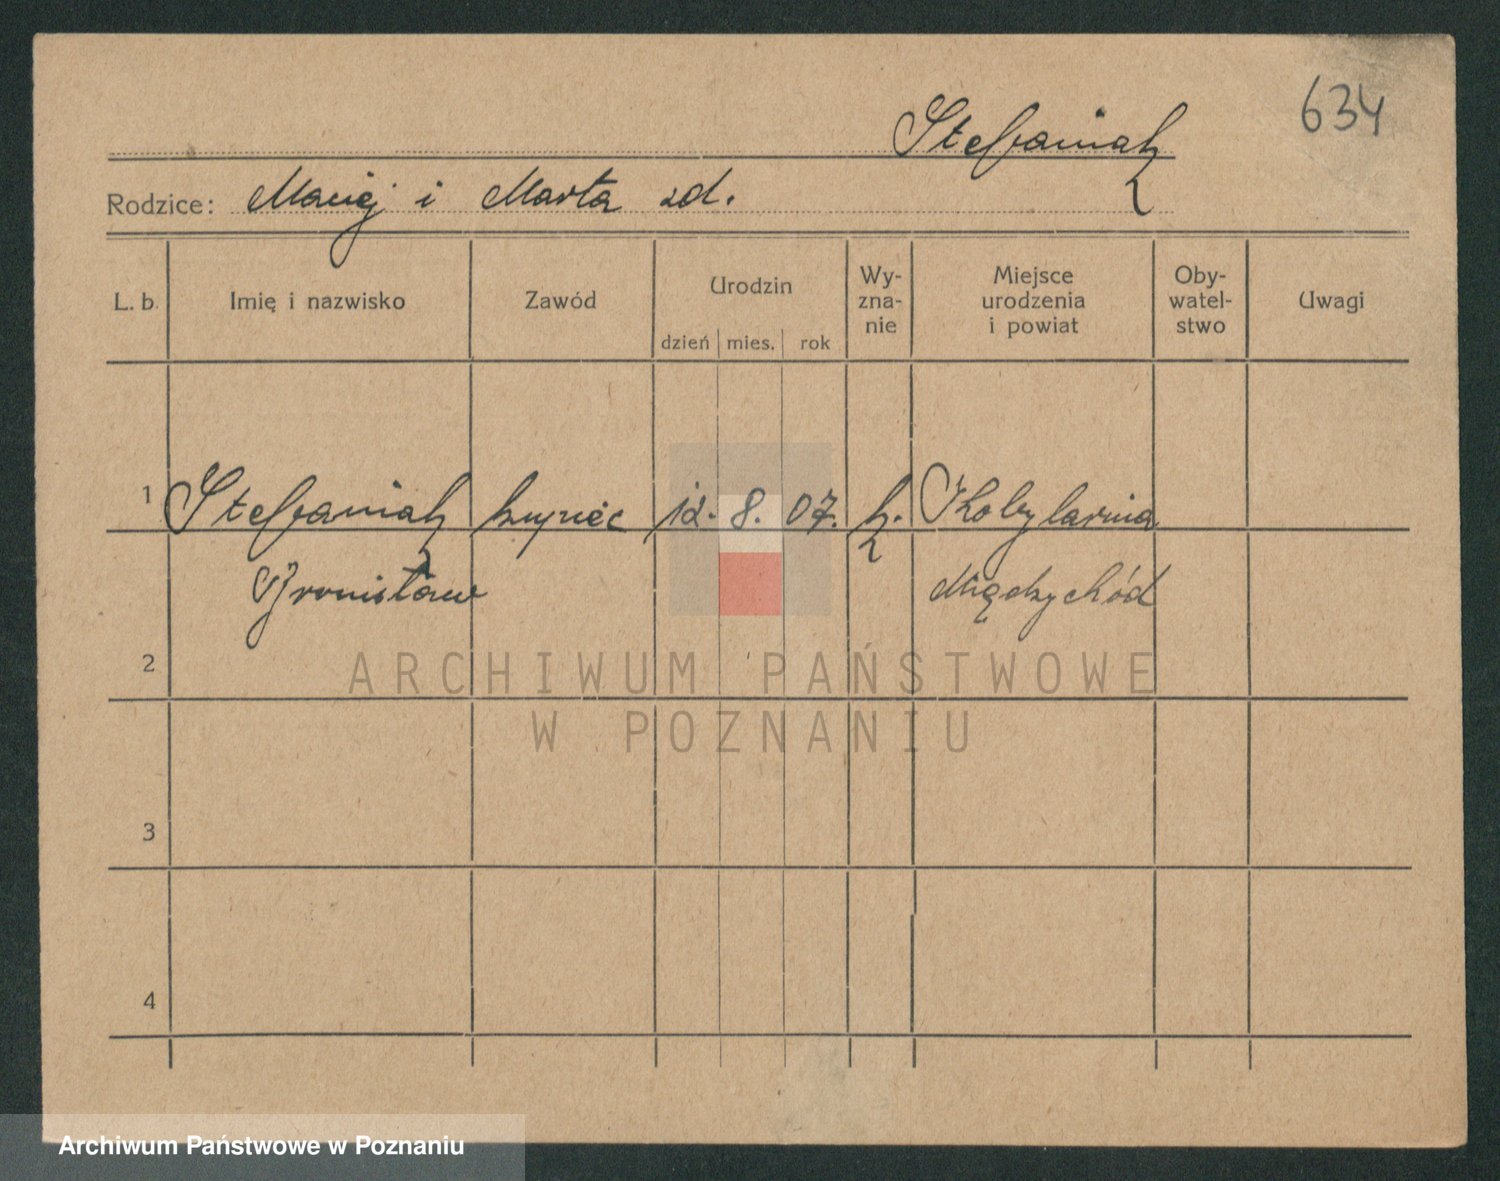 634
Stefaniak
Rodzice: Maciej i Marta zd.
L. b. Imię i nazwisko Zawód Urodzin dzień mies. rok Wy-zna-nie Miejsce urodzenia i powiat Oby-watel-stwo Uwagi
1 Stefaniak kupiec 12. 8. 07. k. Kobylarnia
Bronisław Międzychód
2
ARCHIWUM PAŃSTWOWE
W POZNANIU
3
4
Archiwum Państwowe w Poznaniu